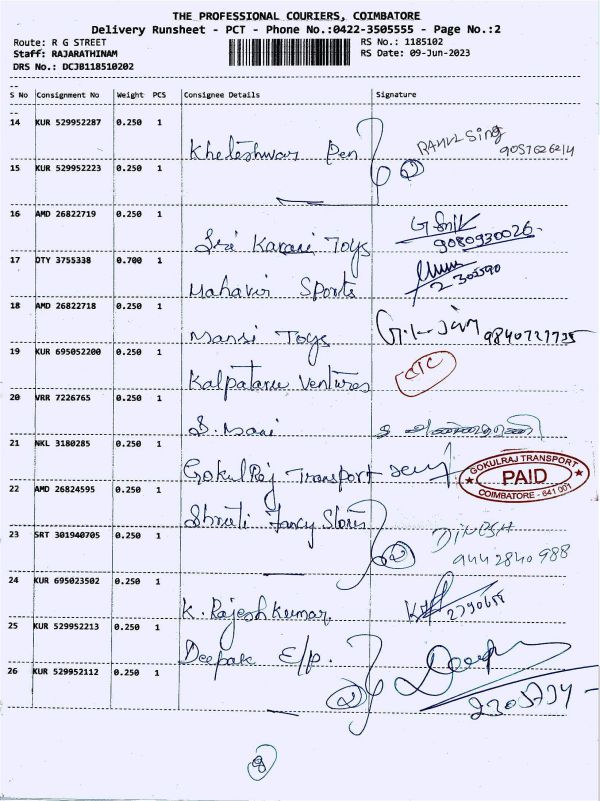 THE PROFESSIONAL COURIERS, COIMBATORE
Delivery Runsheet - PCT - Phone No.:0422-3505555 - Page No.:2
Route: R G STREET RS No.: 1185102
Staff: RAJARATHINAM RS Date: 09-Jun-2023
DRS No.: DCJB118510202
--
S No Consignment No Weight PCS Consignee Details Signature
--
14 KUR 529952287 0.250 1
Kheleshwar Pen RAHUL Sing
9057626214
15 KUR 529952223 0.250 1 2
16 AMD 26822719 0.250 1
Sri Karani Toys 9080930026
17 DTY 3755338 0.700 1
Mahavir Sports 2 30590
18 AMD 26822718 0.250 1
Mansi Toys 9840727735
19 KUR 695052200 0.250 1
Kalpataru Ventures CTC
20 VRR 7226765 0.250 1
S. Mani
21 NKL 3180285 0.250 1
Gokul Raj Transport
GOKULRAJ TRANSPORT
PAID
COIMBATORE - 641 001
22 AMD 26824595 0.250 1
Shruti Fancy Stores
23 SRT 301940705 0.250 1 2 DINESH
944 2840 988
24 KUR 695023502 0.250 1
K. Rajesh Kumar 2390658
25 KUR 529952213 0.250 1
Deepak E/p. Deep
26 KUR 529952112 0.250 1 2